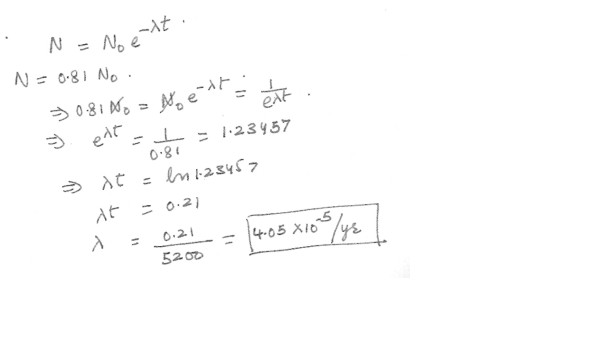 N = N₀ e^{-λt}.
N = 0.81 N₀.
⇒ 0.81 N₀ = N₀ e^{-λt} = 1/e^{λt}.
⇒ e^{λt} = 1/0.81 = 1.23457
⇒ λt = ln 1.23457
λt = 0.21
λ = 0.21/5200 = 4.05 ×10^{-5}/yr